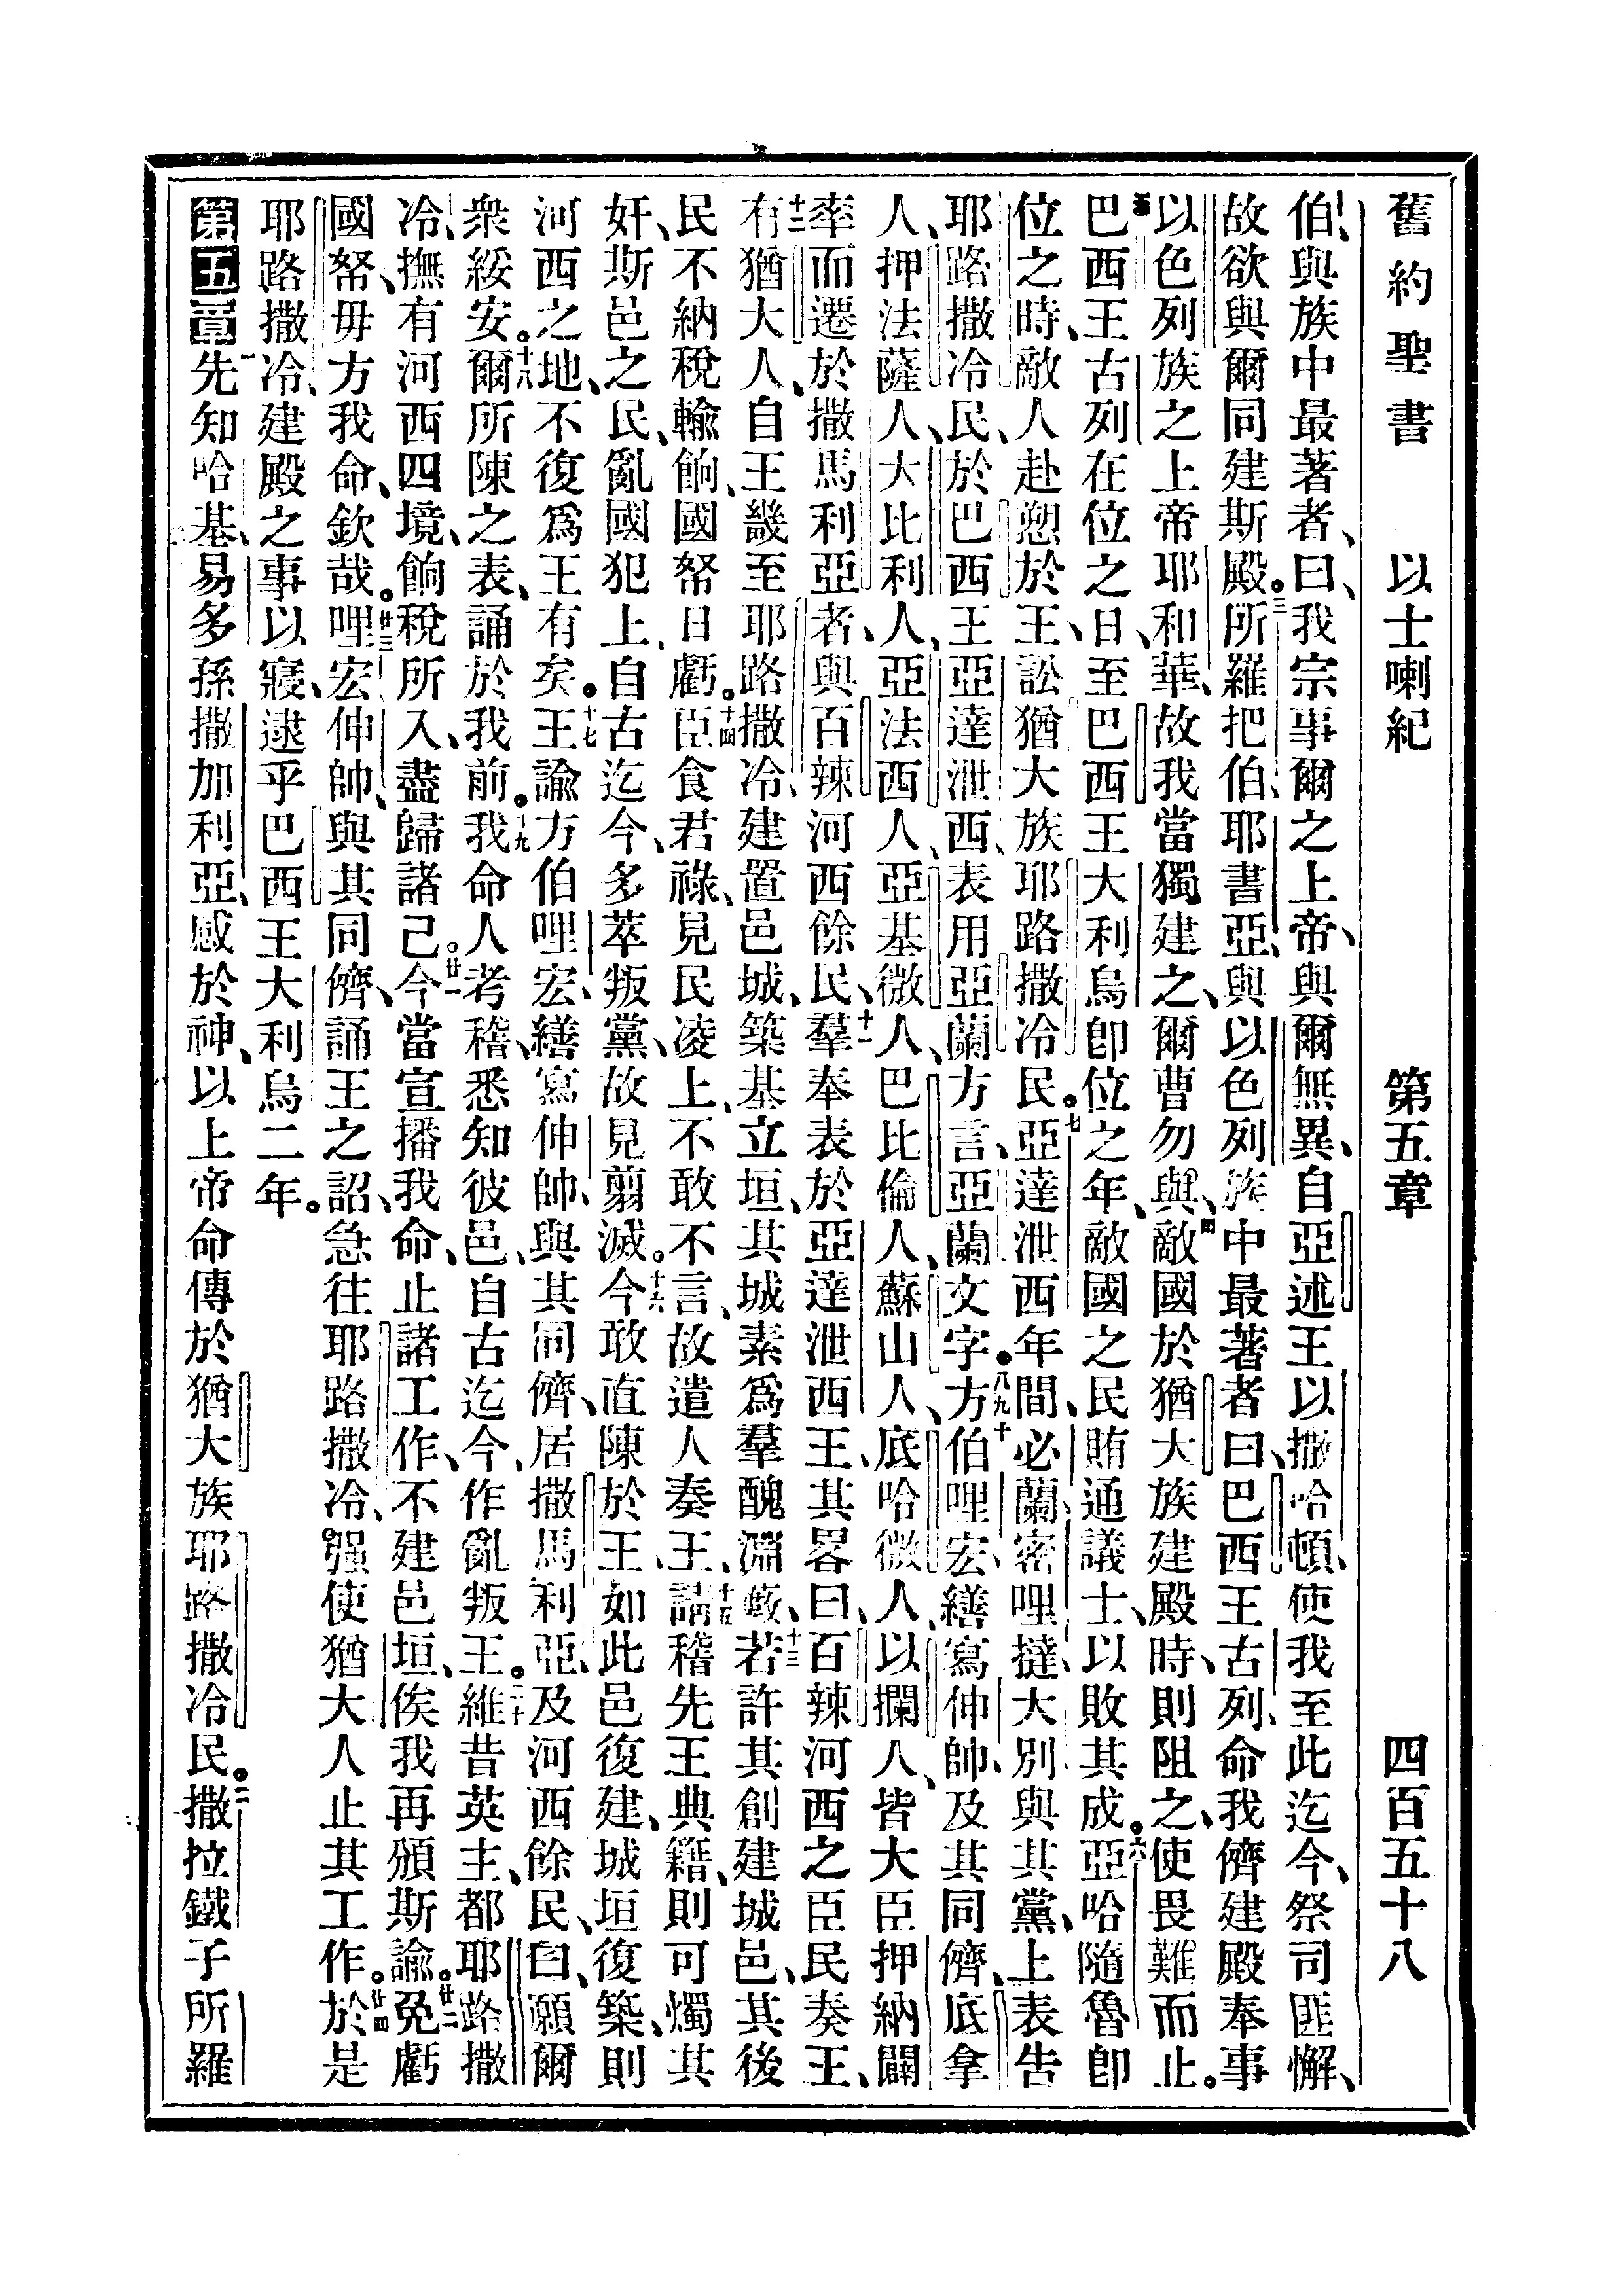 舊約聖書 以士喇紀 第五章 四百五十八
伯、與族中最著者、曰、我宗事爾之上帝、與爾無異、自亞述王以撒哈頓、使我至此迄今、祭司匪懈、
故欲與爾同建斯殿。三所羅把伯、耶書亞、與以色列族中最著者曰、巴西王古列、命我儕建殿奉事
以色列族之上帝耶和華、故我當獨建之、爾曹勿與、四敵國於猶大族建殿時、則阻之、使畏難而止。
五巴西王古列在位之日、至巴西王大利烏卽位之年、敵國之民、賄通議士、以敗其成。六亞哈隨魯卽
位之時、敵人赴愬於王、訟猶大族耶路撒冷民。七亞達泄西年間、必蘭、密哩撻、大別、與其黨、上表告
耶路撒冷民、於巴西王亞達泄西、表用亞蘭方言、亞蘭文字。八九十方伯哩宏、繕寫伸帥、及其同儕、底拿
人、押法薩人、大比利人、亞法西人、亞基微人、巴比倫人、蘇山人、底哈微人、以攔人、皆大臣押納闢
率而遷於撒馬利亞者、與百辣河西餘民、十一羣奉表於亞達泄西王、其畧曰、百辣河西之臣民奏王、
十二有猶大人、自王畿至耶路撒冷、建置邑城、築基立垣、其城素爲羣醜淵藪、十三若許其創建城邑、其後
民不納稅輸餉、國帑日虧。十四臣食君祿、見民凌上、不敢不言、故遣人奏王、十五請稽先王典籍、則可燭其
奸、斯邑之民、亂國犯上、自古迄今、多萃叛黨、故見翦滅。十六今敢直陳於王、如此邑復建、城垣復築、則
河西之地、不復爲王有矣。十七王諭方伯哩宏、繕寫伸帥、與其同儕、居撒馬利亞、及河西餘民、曰、願爾
衆綏安。十八爾所陳之表、誦於我前。十九我命人考稽、悉知彼邑、自古迄今、作亂叛王。二十維昔英主、都耶路撒
冷、撫有河西四境、餉稅所入、盡歸諸己。廿一今當宣播我命、止諸工作、不建邑垣、俟我再頒斯諭。廿二免虧
國帑、毋方我命、欽哉。廿三哩宏伸帥、與其同儕、誦王之詔、急往耶路撒冷、强使猶大人止其工作。廿四於是
耶路撒冷、建殿之事以寢、逮乎巴西王大利烏二年。
第五章 一先知哈基、易多孫撒加利亞、感於神、以上帝命傳於猶大族耶路撒冷民。二撒拉鐵子所羅